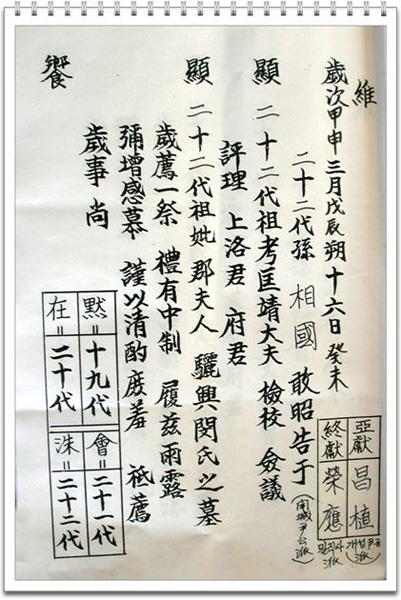 維
歲次甲申三月戊辰朔十六日癸未
二十二代孫 相國 敢昭告于
(開城尹公派)
顯 二十二代祖考匡靖大夫 檢校 僉議
評理 上洛君 府君
顯 二十二代祖妣 郡夫人 驪興閔氏之墓
歲薦一祭 禮有中制 履玆雨露
彌增感慕 謹以清酌庶羞 祗薦
歲事 尚
饗
亞獻 昌植
終獻 榮應
밀직사派
黙=十九代
會=二十一代
在=二十代
洙=二十二代